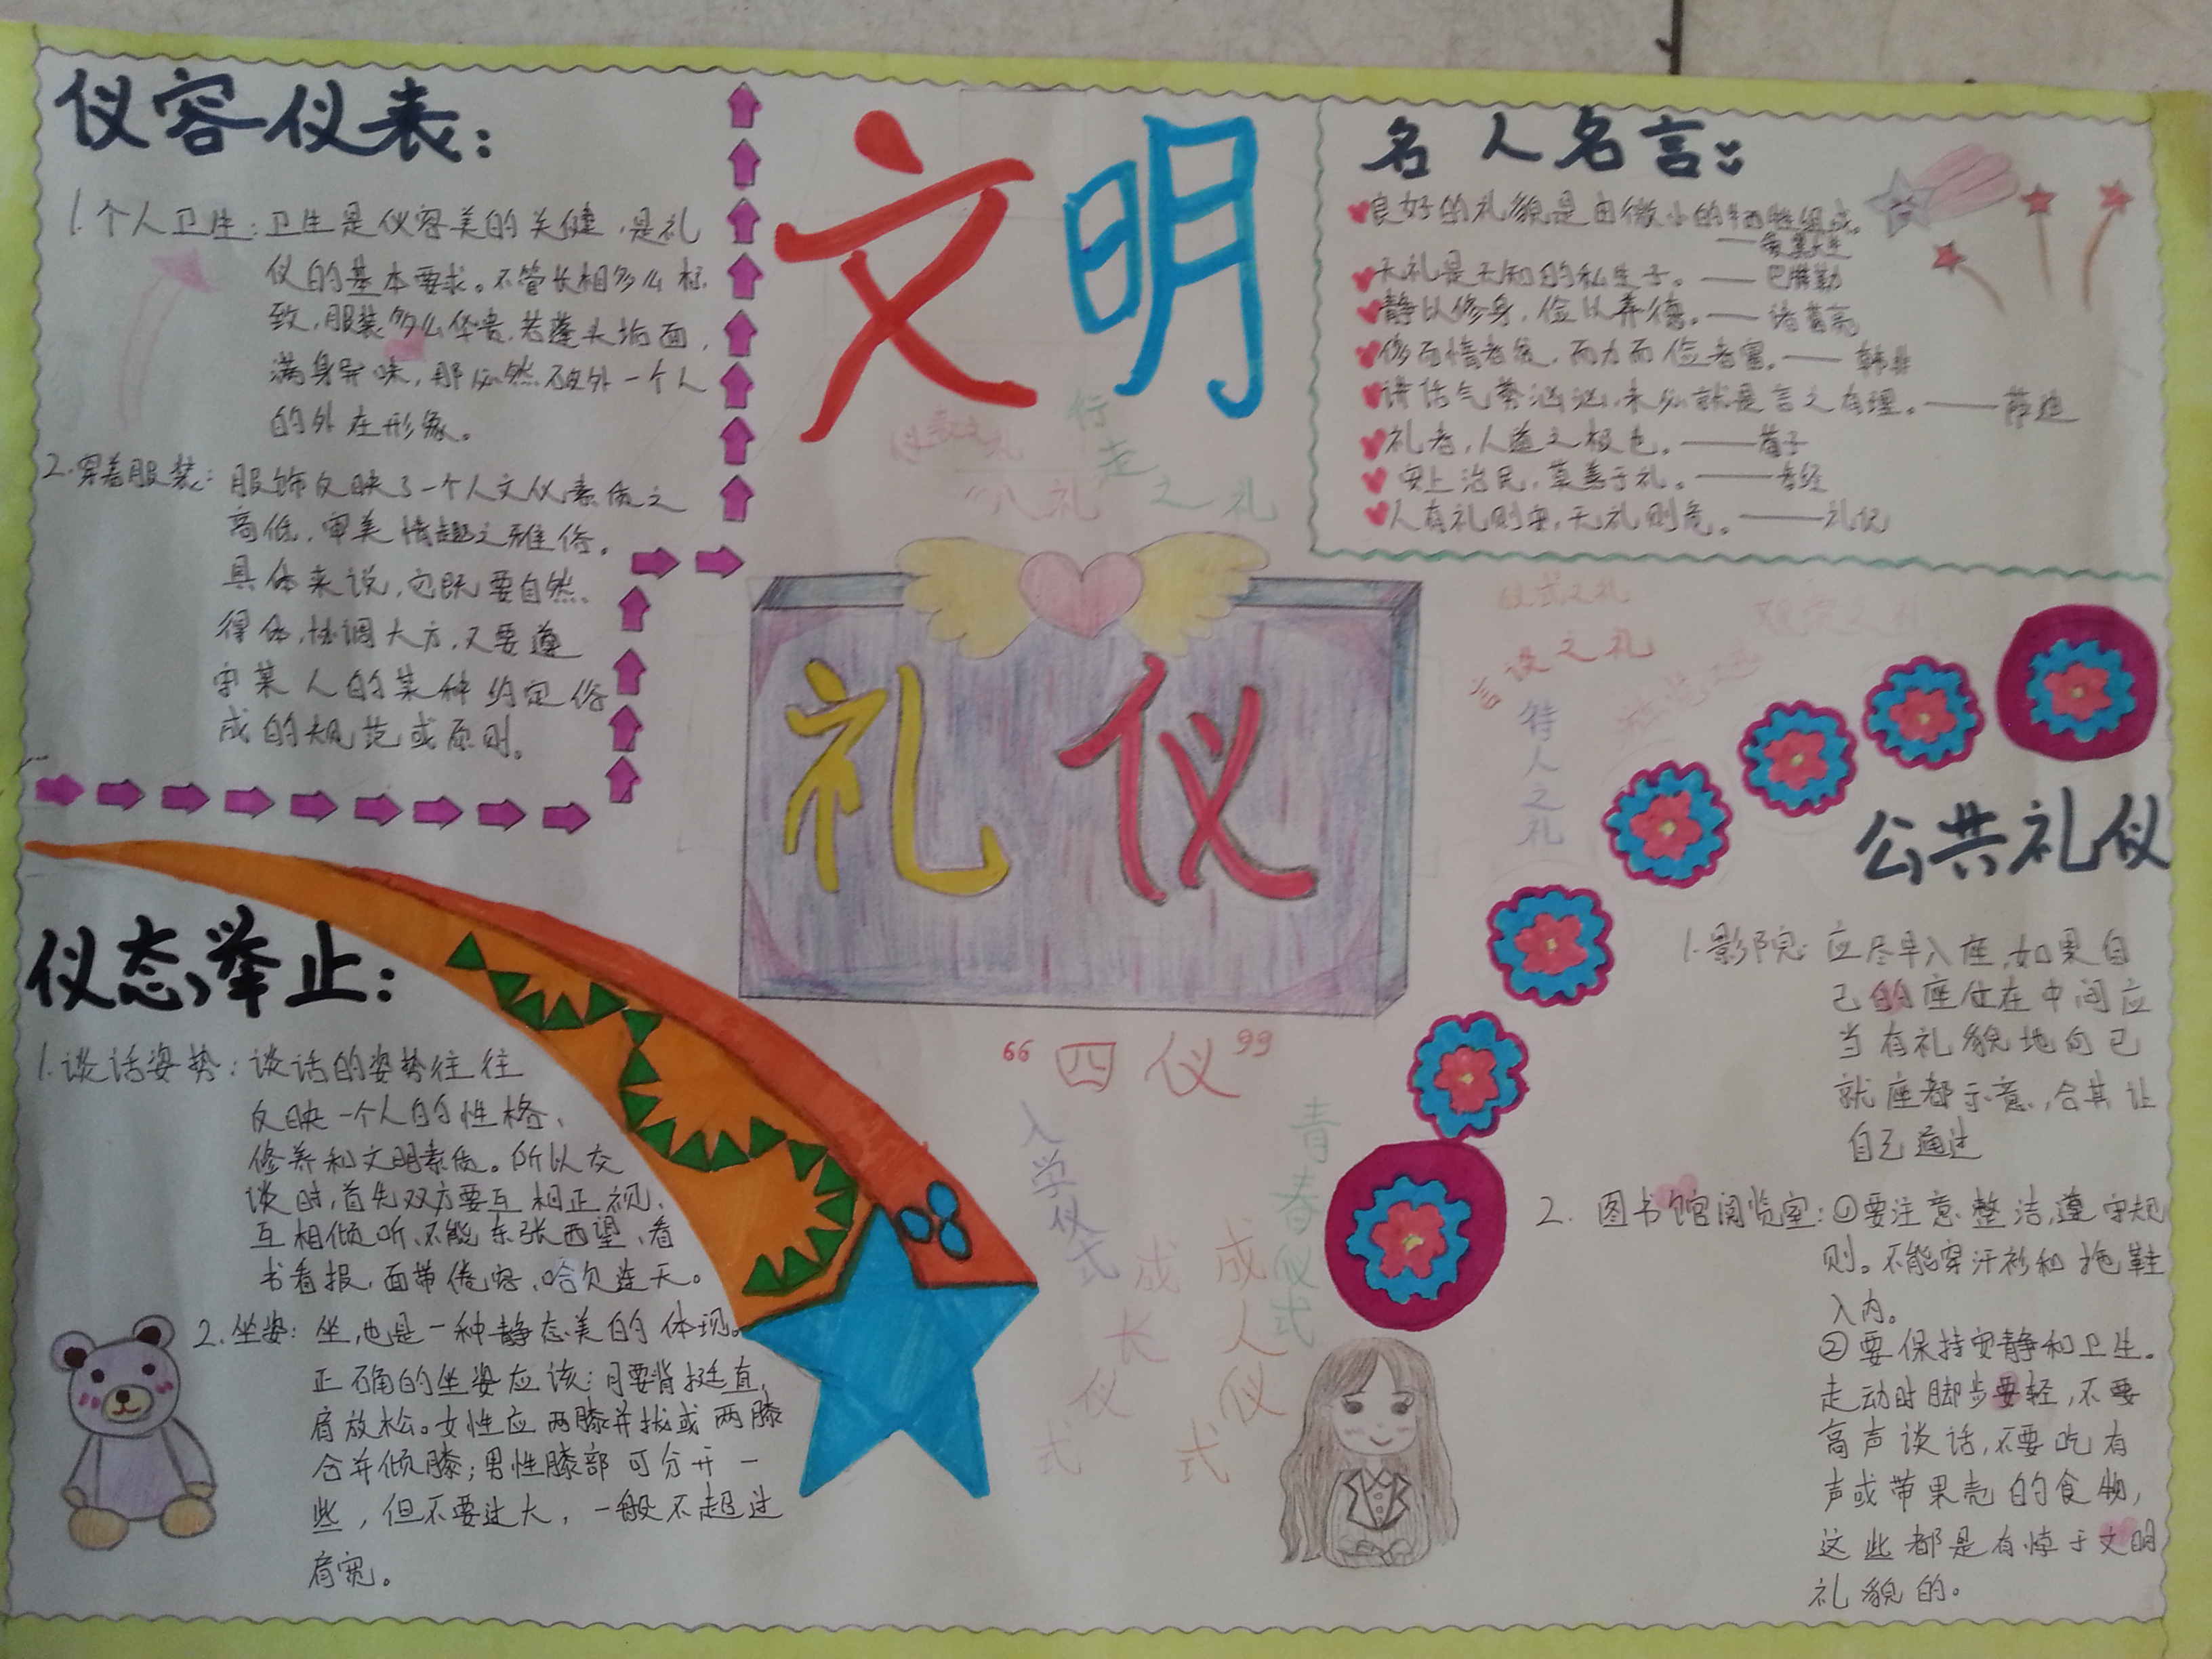 仪容仪表:
1.个人卫生:卫生是仪容美的关健,是礼
仪的基本要求。不管长相多么标
致,服装多么华贵,若蓬头垢面,
满身异味,那必然破外一个人
的外在形象。
2.穿着服装:服饰反映了一个人文仪素质之
高低,审美情趣之雅俗。
具体来说,它既要自然、
得体,协调大方,又要遵
守某人的某种约定俗
成的规范或原则。
仪态举止:
1.谈话姿势:谈话的姿势往往
反映一个人的性格、
修养和文明素质。所以交
谈时,首先双方要互相正视、
互相倾听、不能东张西望、看
书看报,面带倦容、哈欠连天。
2.坐姿:坐,也是一种静态美的体现。
正确的坐姿应该:腰背挺直,
肩放松。女性应两膝并拢或两膝
合并倾膝;男性膝部可分开一
些,但不要过大,一般不超过
肩宽。
文明
行走之礼
"八礼"
礼仪
"四仪"
入学仪式
成长仪式
成人仪式
青春仪式
名人名言:
良好的礼貌是由微小的牺牲组成。
无礼是无知的私生子。——巴特勒
静以修身,俭以养德。——诸葛亮
侈而惰者贫,而力而俭者富。——韩非
讲话气势汹汹,未必就是言之有理。——萨迪
礼者,人道之极也。——荀子
安上治民,莫善于礼。——孝经
人有礼则安,无礼则危。——礼记
仪式之礼
言谈之礼
待人之礼
观赏之礼
公共礼仪
1.影院:应尽早入座,如果自
己的座位在中间应
当有礼貌地向已
就座都示意,合其让
自己通过
2.图书馆阅览室:①要注意整洁,遵守规
则。不能穿汗衫和拖鞋
入内。
②要保持安静和卫生。
走动时脚步要轻,不要
高声谈话,不要吃有
声或带果壳的食物,
这些都是有悖于文明
礼貌的。